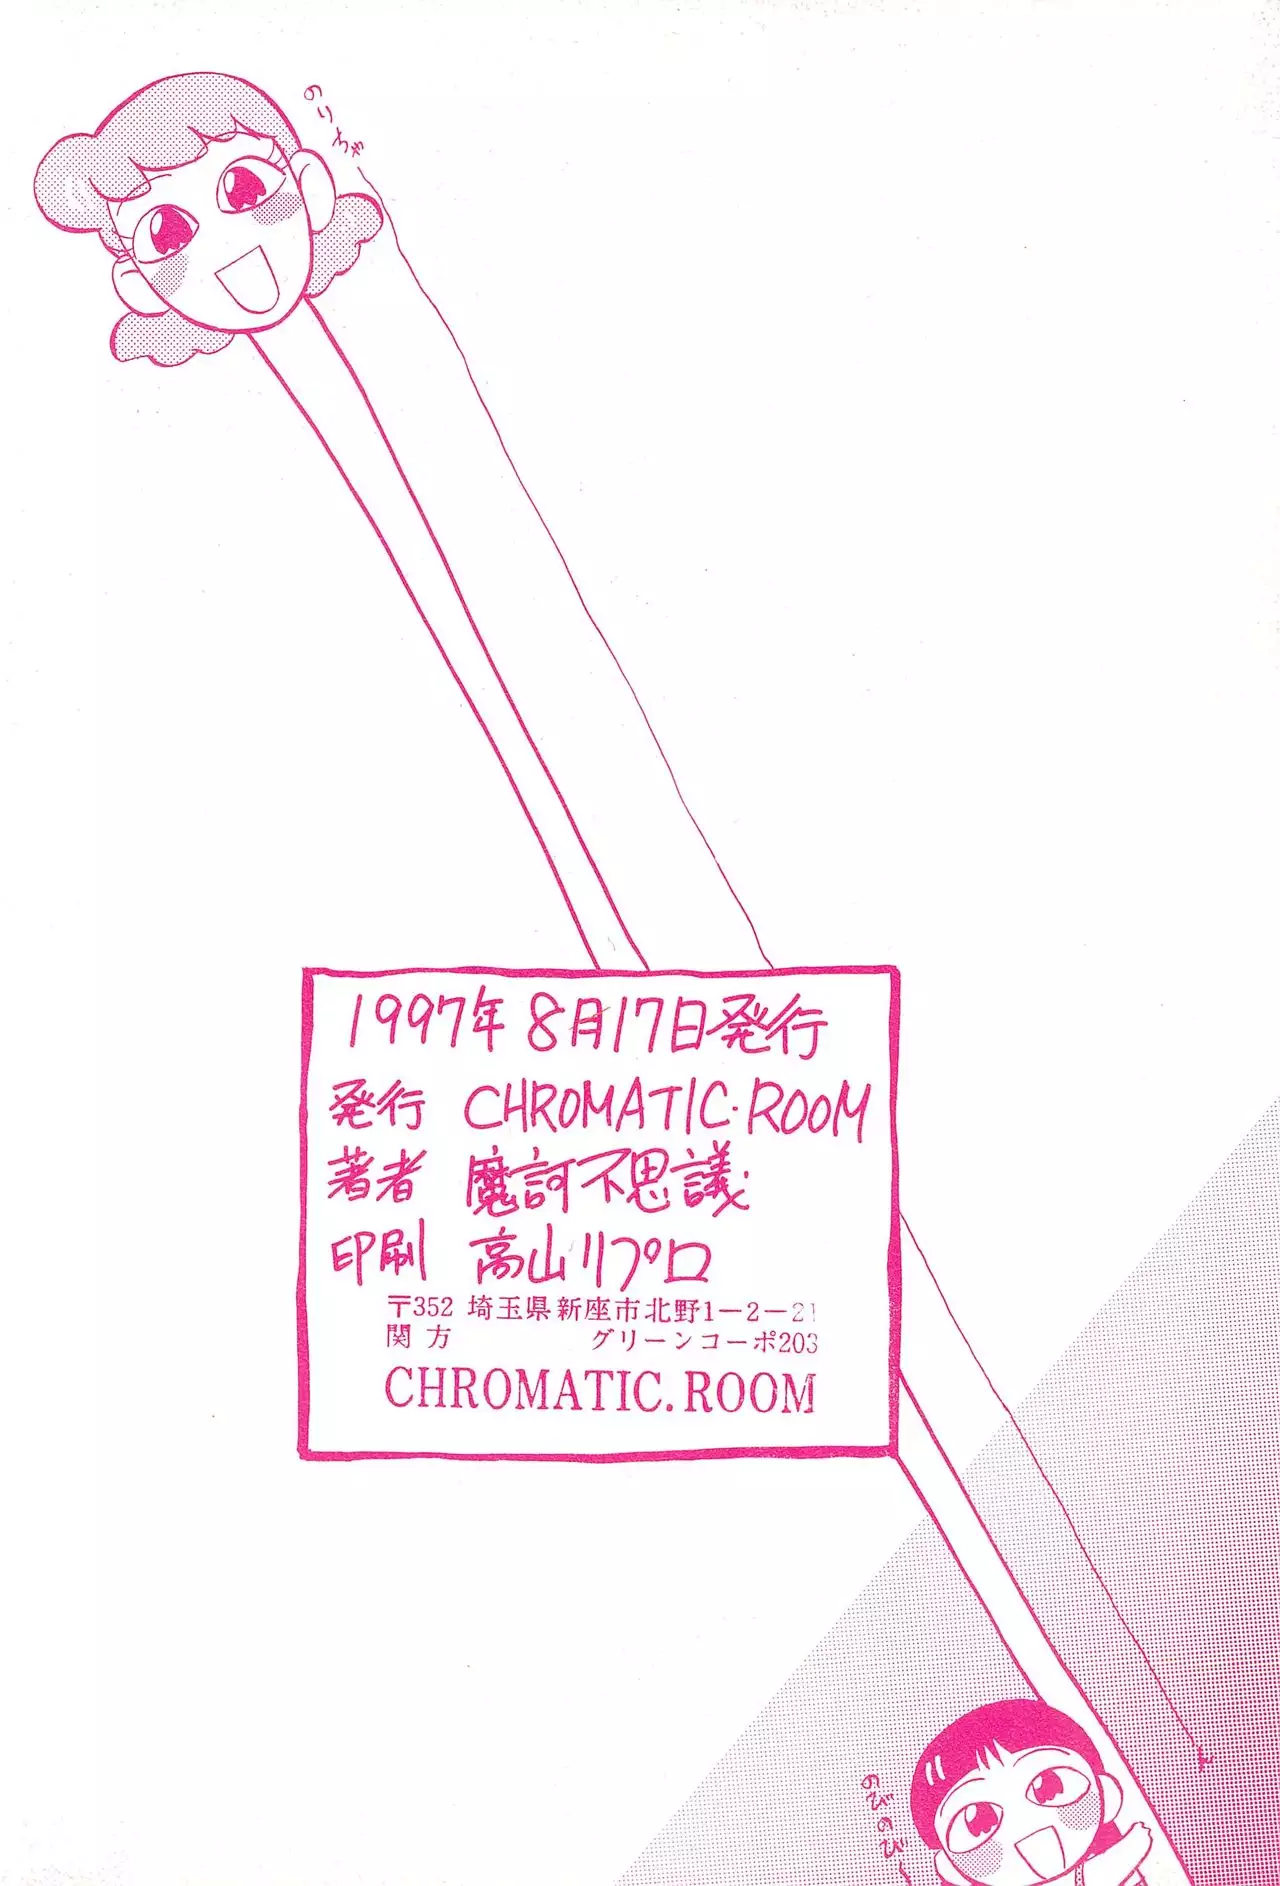 のりちゃ〜ん
1997年8月17日発行
発行 CHROMATIC・ROOM
著者 魔訶不思議
印刷 高山リプロ
〒352 埼玉県新座市北野1－2－21
関方 グリーンコーポ203
CHROMATIC.ROOM
のびのび〜